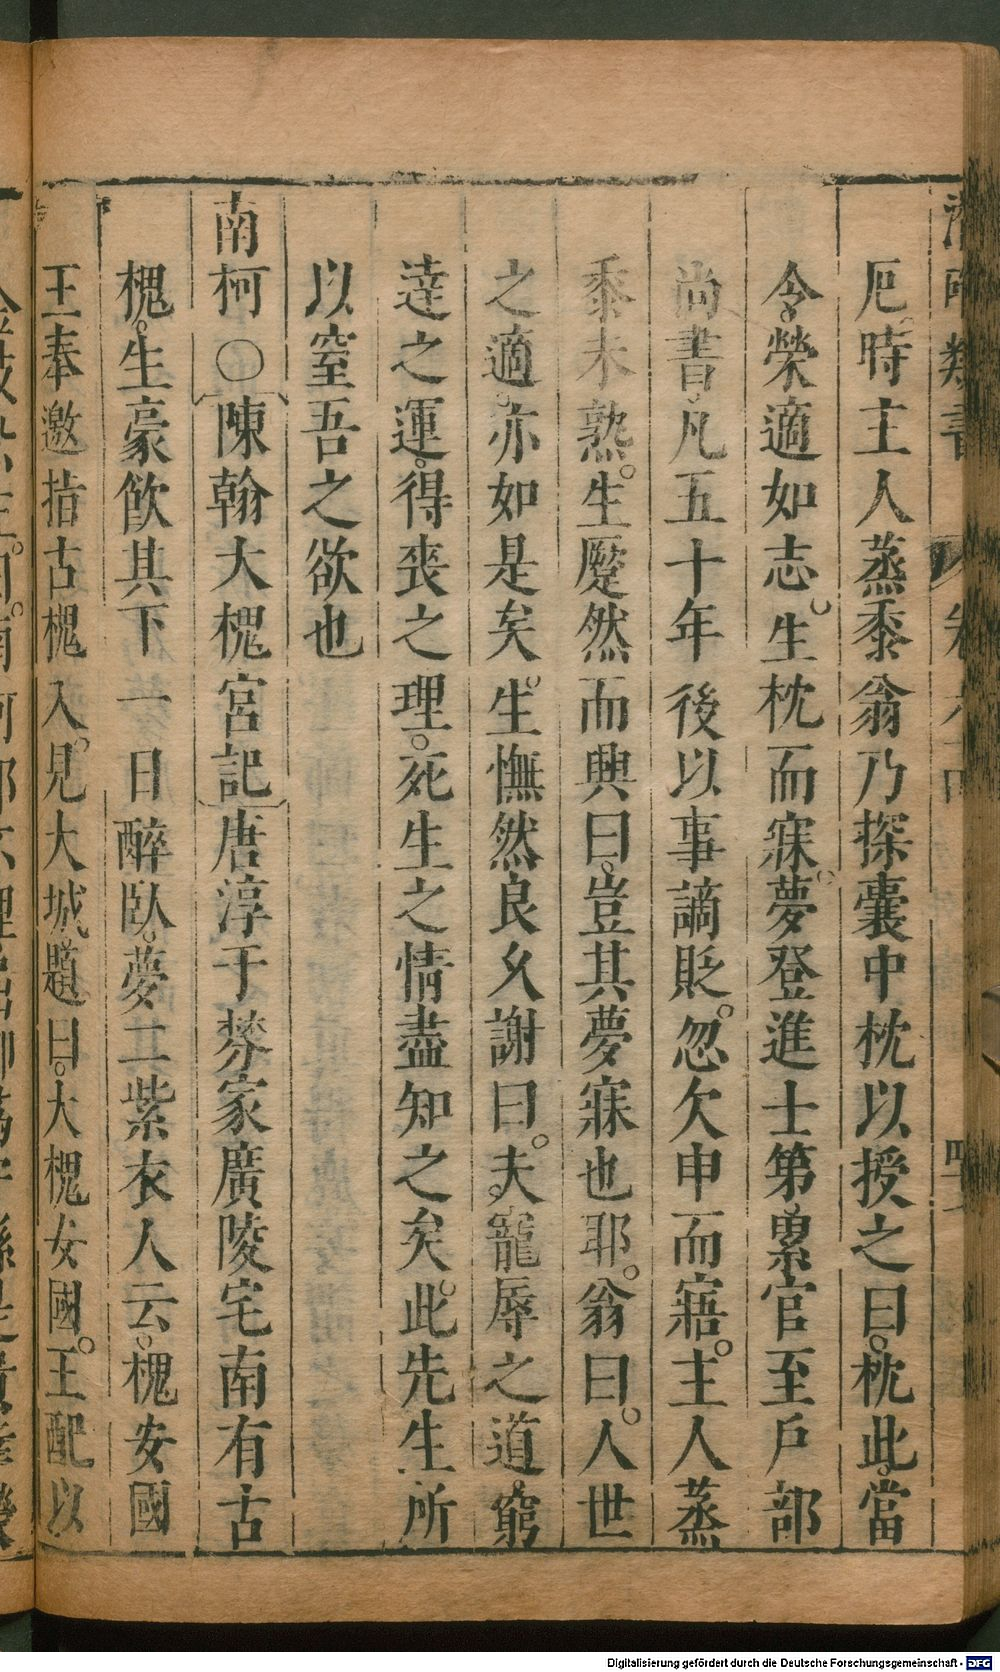 厄。時主人蒸黍翁乃探囊中枕以授之曰。枕此。當
令。榮適如志。生枕而寐。夢登進士第。累官至戶部
尚書。凡五十年後以事謫貶。忽欠申而寤。主人蒸
黍未熟。生蹷然而興曰。豈其夢寐也耶。翁曰。人世
之適。亦如是矣。生憮然良久謝曰。夫寵辱之道。窮
達之運。得喪之理。死生之情盡知之矣。此先生所
以窒吾之欲也
南柯〇陳翰大槐宮記唐淳于棼家廣陵宅南有古
槐。生豪飲其下一日醉臥。夢二紫衣人云。槐安國
王奉邀指古槐入見。大城題曰。大槐安國。王配以
Digitalisierung gefördert durch die Deutsche Forschungsgemeinschaft - DFG